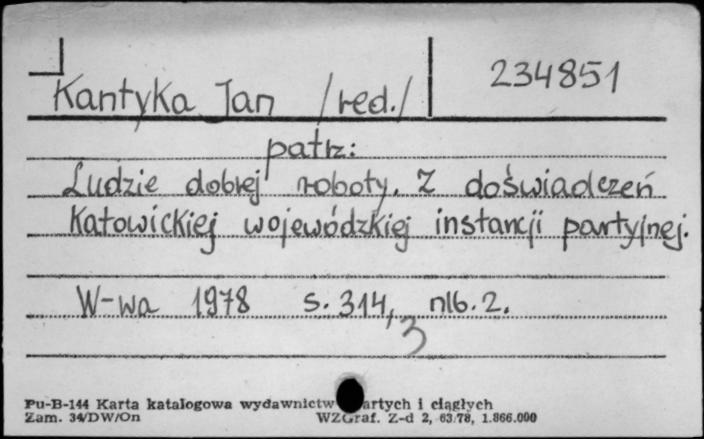 234851
Kantyka Jan /red./
patrz:
Ludzie dobrej roboty. Z doświadczeń
Katowickiej wojewódzkiej instancji partyjnej.
W-wa 1978 s. 314, nlb. 2.
3
Pu-B-144 Karta katalogowa wydawnictw artych i ciągłych
Zam. 34/DW/On WZGraf. Z-d 2, 63.78, 1.866.000